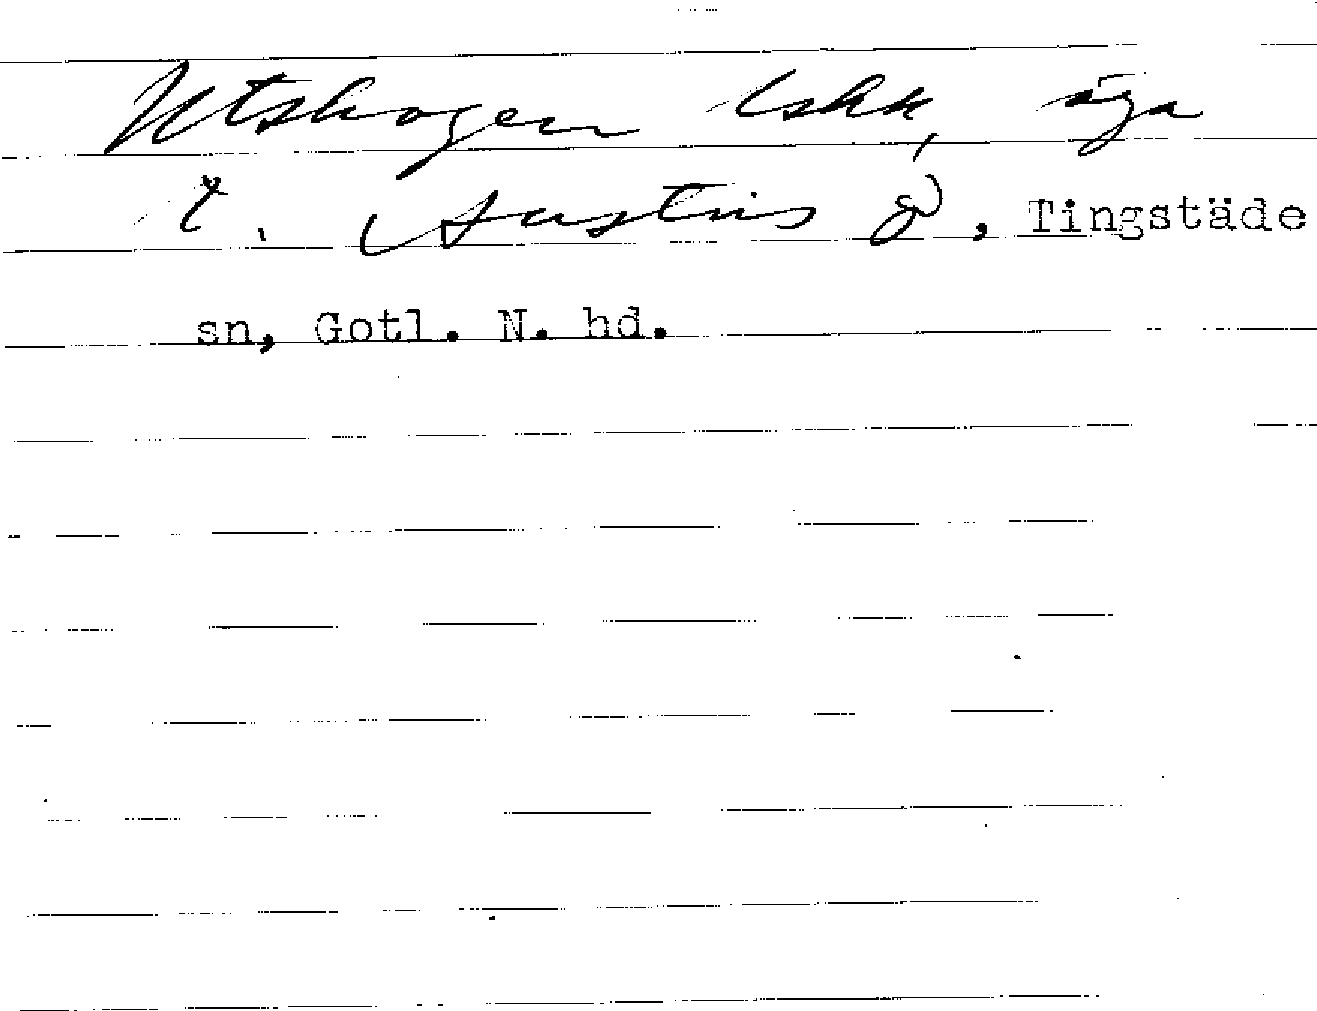 Utskogen skh, äga
t. Austris g, Tingstäde
sn, Gotl. N. hd.